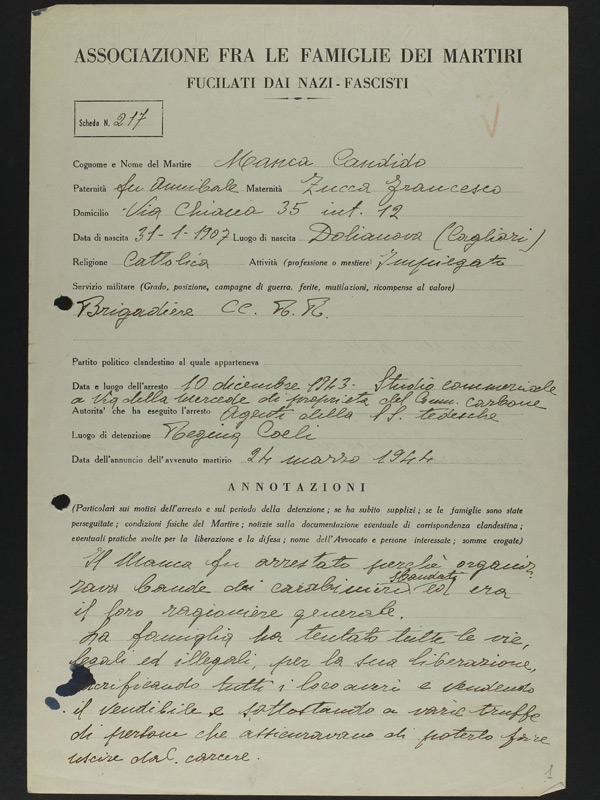 ASSOCIAZIONE FRA LE FAMIGLIE DEI MARTIRI
FUCILATI DAI NAZI-FASCISTI
Scheda N. 217
Cognome e Nome del Martire Manca Candido
Paternità fu Annibale Maternità Zucca Francesca
Domicilio Via Chiana 35 int. 12
Data di nascita 31-1-1907 Luogo di nascita Dolianova (Cagliari)
Religione Cattolica Attività (professione o mestiere) Impiegato
Servizio militare (Grado, posizione, campagne di guerra. ferite, mutilazioni, ricompense al valore)
Brigadiere CC. R. R.
Partito politico clandestino al quale apparteneva
Data e luogo dell'arresto 10 dicembre 1943 - Studio commerciale
a Via della Mercede di proprietà del Comm. Carbone
Autorita' che ha eseguito l'arresto Agenti della SS. tedesche
Luogo di detenzione Regina Coeli
Data dell'annuncio dell'avvenuto martirio 24 marzo 1944
ANNOTAZIONI
(Particolari sui motivi dell'arresto e sul periodo della detenzione; se ha subito supplizi; se le famiglie sono state
perseguitate; condizioni fisiche del Martire; notizie sulla documentazione eventuale di corrispondenza clandestina;
eventuali pratiche svolte per la liberazione e la difesa; nome dell'Avvocato e persone interessate; somme erogate)
Il Manca fu arrestato perchè organiz-
zava bande dei carabinieri sbandati ed era
il loro ragioniere generale.
La famiglia ha tentato tutte le vie,
legali ed illegali, per la sua liberazione,
sacrificando tutti i loro averi e vendendo
il vendibile e sottostando a varie truffe
di persone che assicuravano di poterlo fare
uscire dal carcere.
1